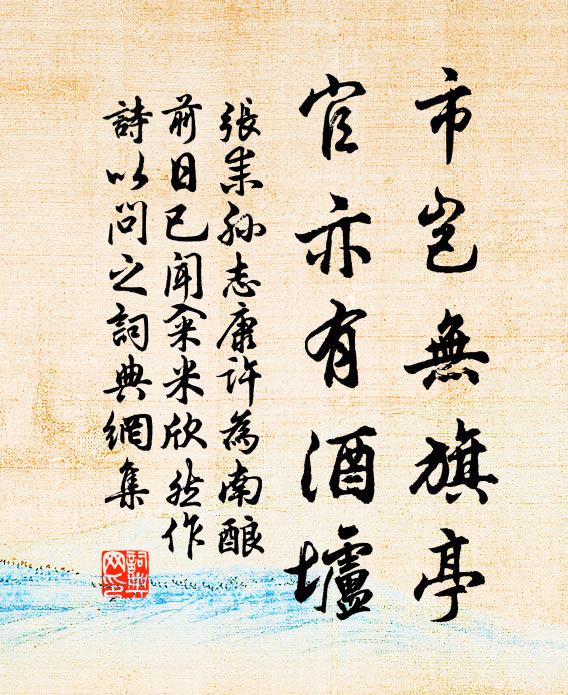 市岂無旗亭
官亦有酒壚
張耒孫志康許為南酿
前日已闻籴米欣然作
詩以問之詞典網集
詞典
网印